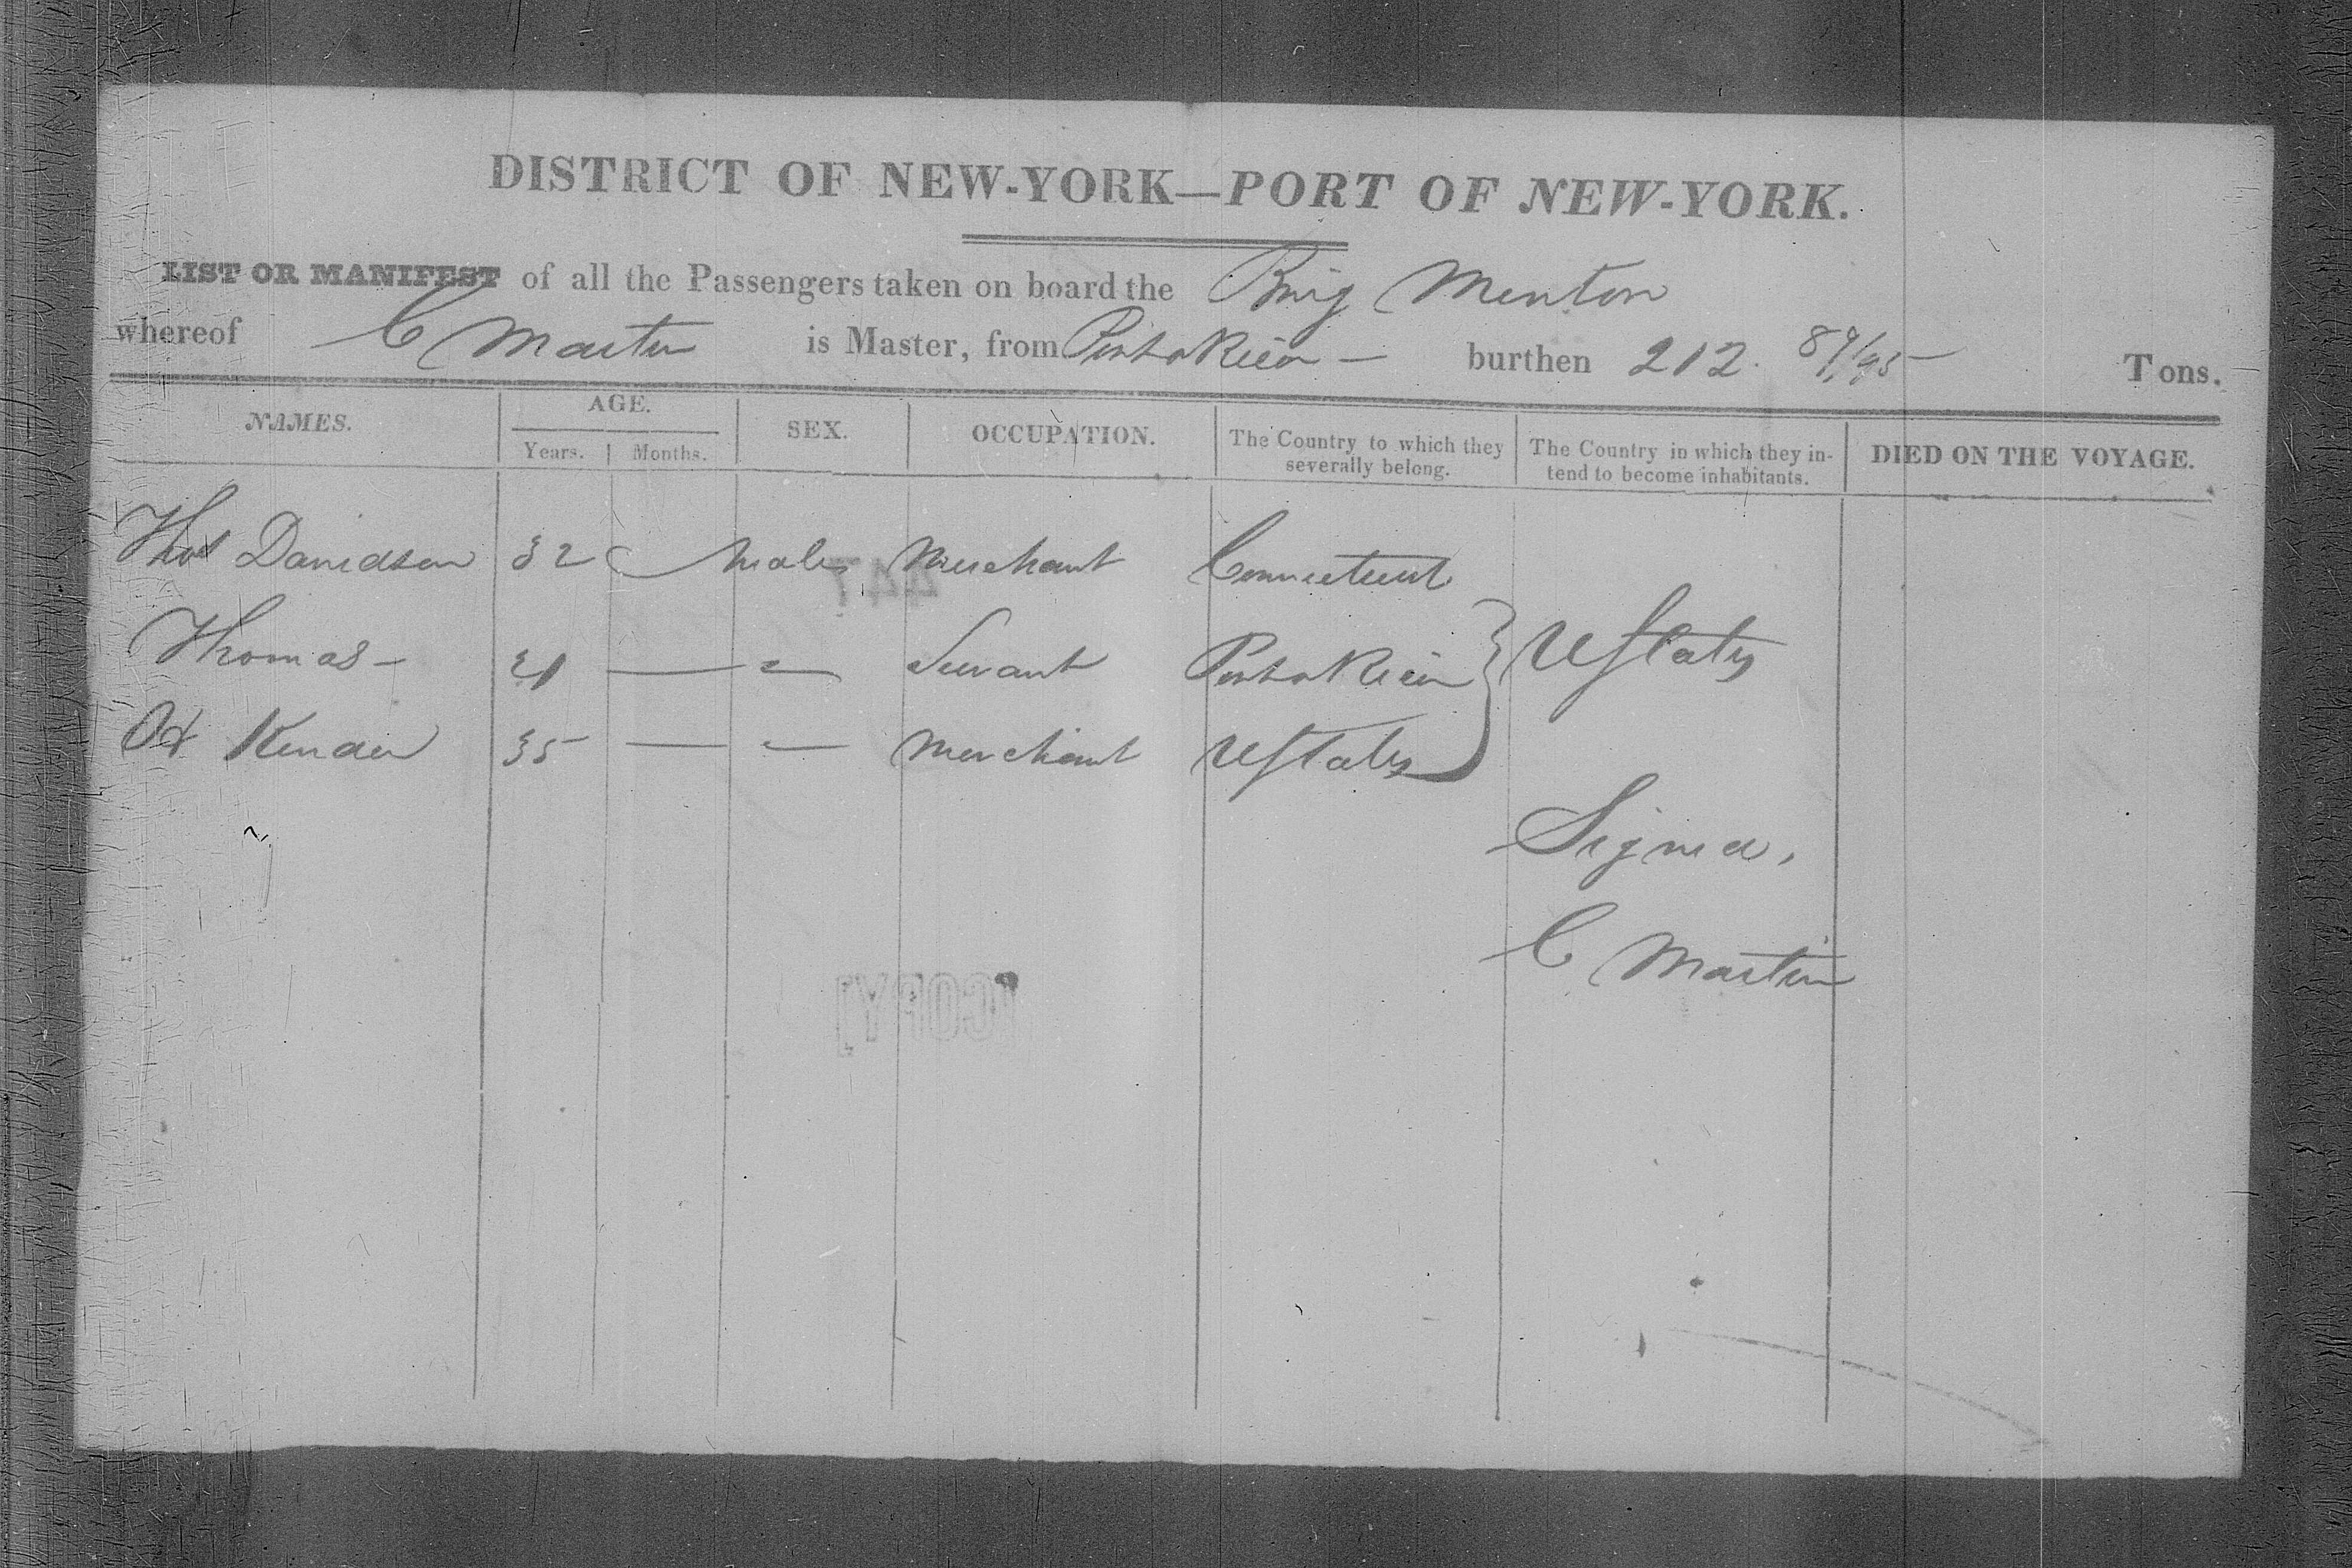 DISTRICT OF NEW-YORK—PORT OF NEW-YORK.
LIST OR MANIFEST of all the Passengers taken on board the Brig Mentor
whereof C Martin is Master, from Porto Rico — burthen 212. 89/95 Tons.
NAMES. AGE. SEX. OCCUPATION. The Country to which they severally belong. The Country in which they intend to become inhabitants. DIED ON THE VOYAGE.
Years. Months.
Thos Davidson 32 Male Merchant Connecticut
Thomas — 21 — " Servant Porto Rico } UStates
Kender 35 — " Merchant UStates
Signed,
C Martin
447
[COPY]